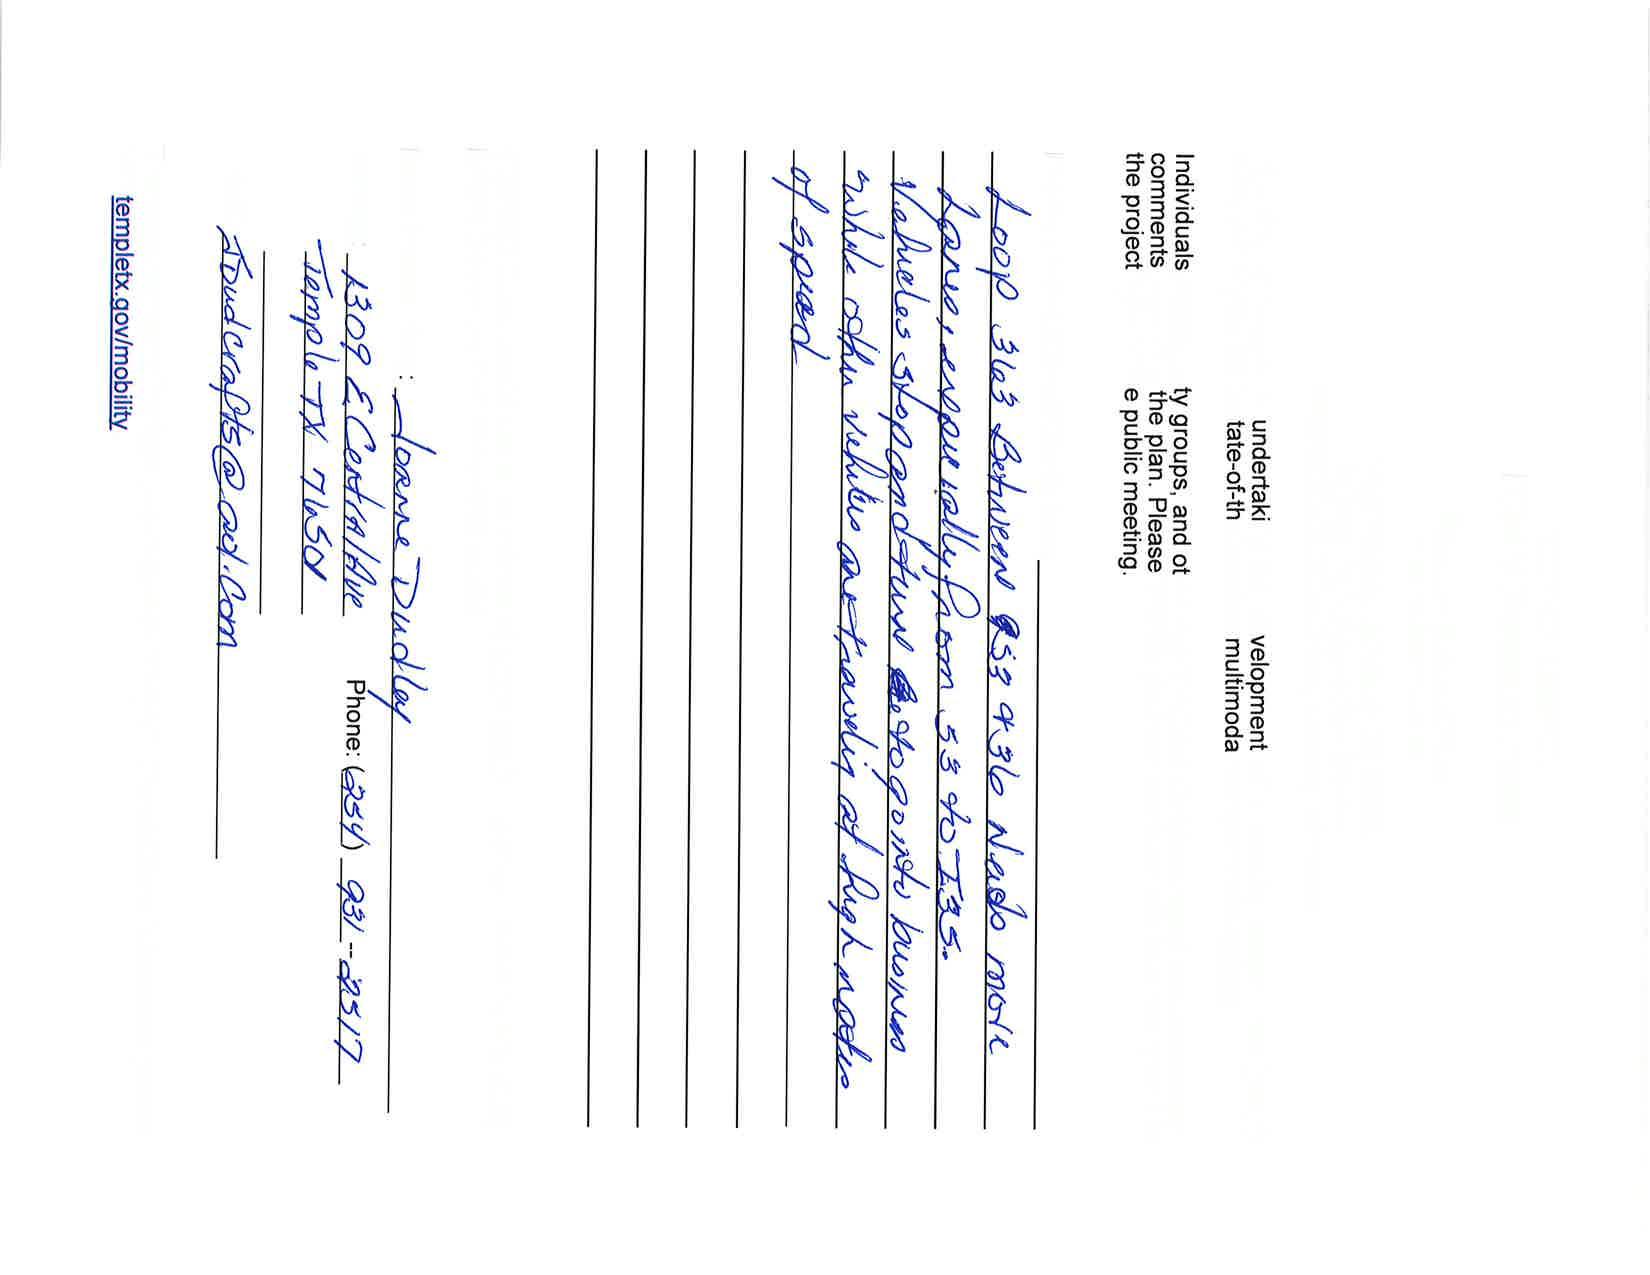 undertaki velopment
tate-of-th multimoda
Individuals ty groups, and ot
comments the plan. Please
the project e public meeting.
Loop 363 Between 53 & 36 Needs more
Lanes, especially from 53 to I35.
Vehicles stop and turn to go into business
while other vehicles are traveling at high rates
of speed
: Joanne Dudley
1309 E Central Ave Phone: (254) 931--2517
Temple TX 76501
JDudcrafts@aol.com
templetx.gov/mobility